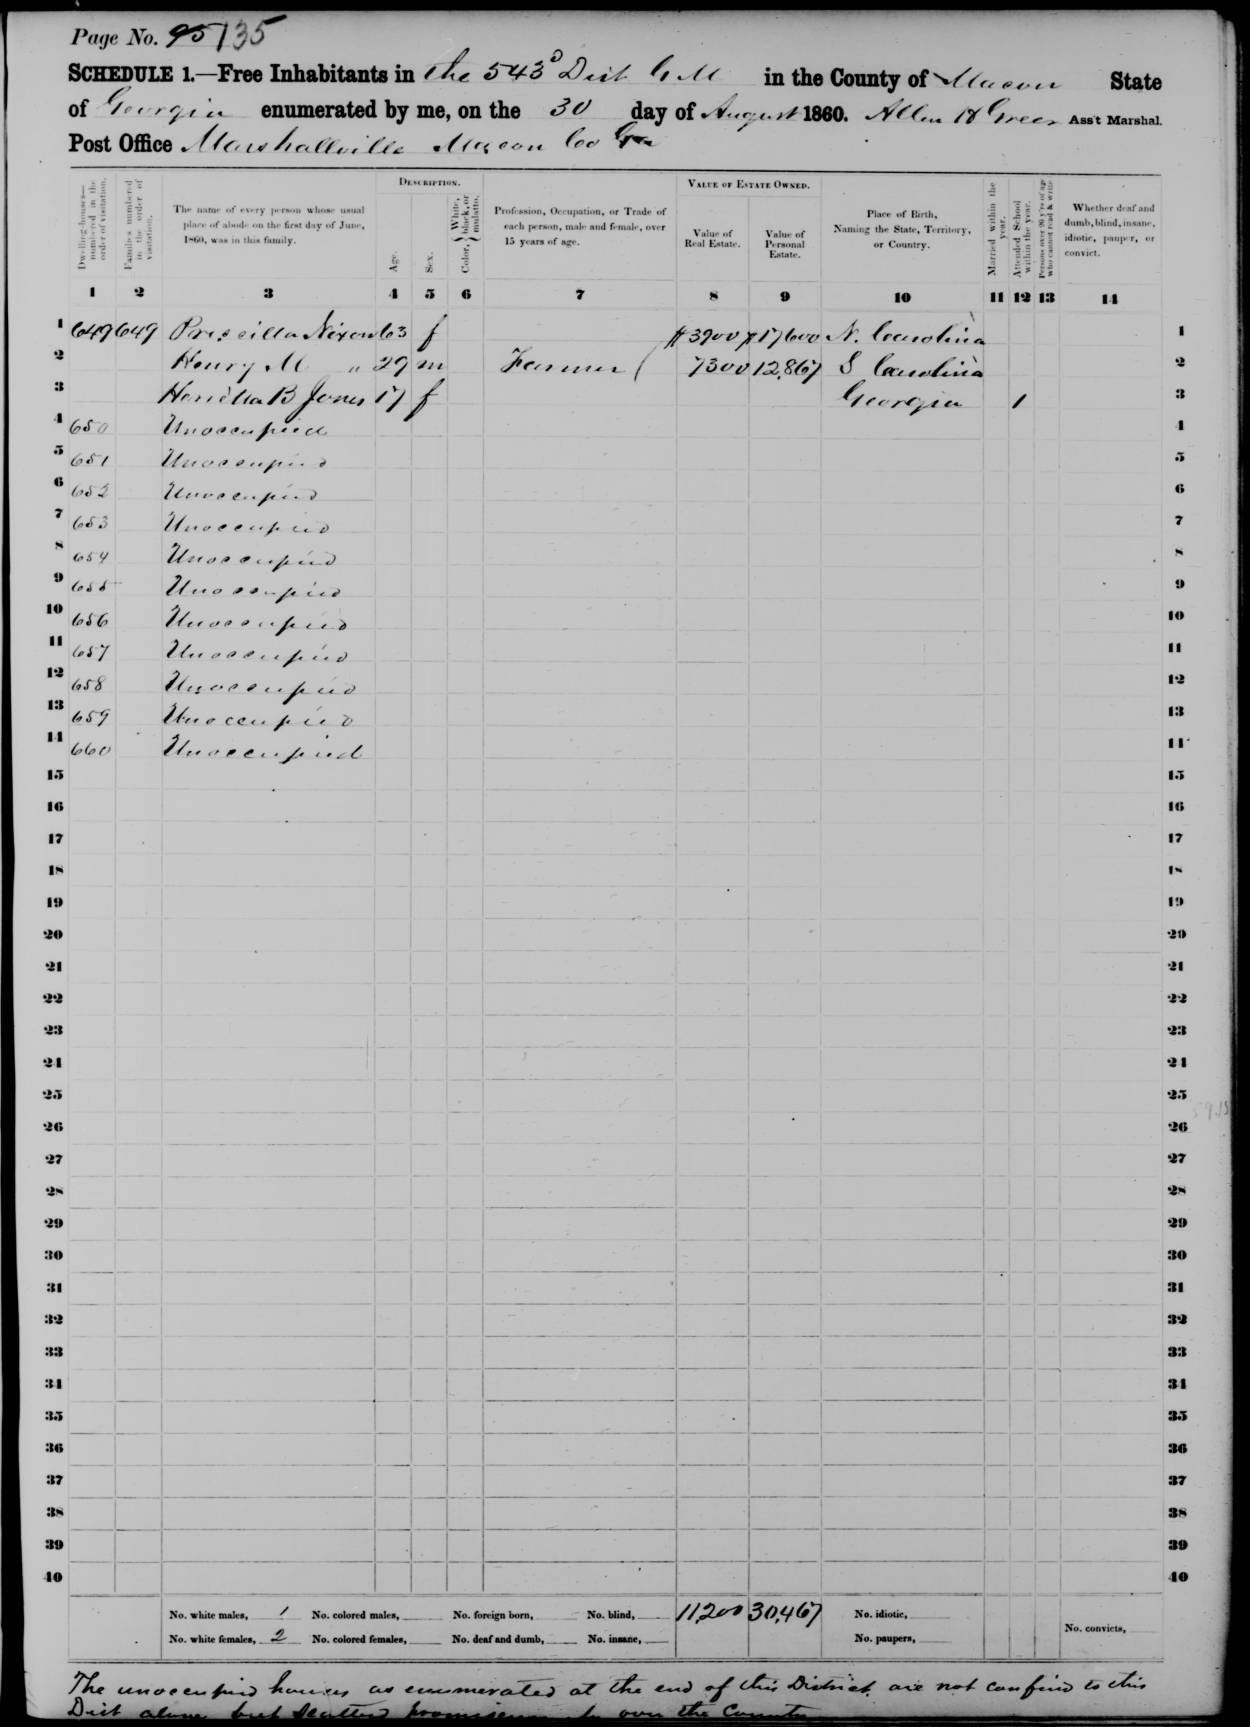 Page No. 95 135
SCHEDULE 1.—Free Inhabitants in the 543d Dist G M in the County of Macon State
of Georgia enumerated by me, on the 30 day of August 1860. Allen H Greer Ass't Marshal.
Post Office Marshallville Macon Co Ga
Dwelling-houses—numbered in the order of visitation.
Families numbered in the order of visitation.
The name of every person whose usual place of abode on the first day of June, 1860, was in this family.
DESCRIPTION.
Age.
Sex.
Color, White, black, or mulatto.
Profession, Occupation, or Trade of each person, male and female, over 15 years of age.
VALUE OF ESTATE OWNED.
Value of Real Estate.
Value of Personal Estate.
Place of Birth, Naming the State, Territory, or Country.
Married within the year.
Attended School within the year.
Persons over 20 y'rs of age who cannot read & write.
Whether deaf and dumb, blind, insane, idiotic, pauper, or convict.
1 2 3 4 5 6 7 8 9 10 11 12 13 14
1 649 649 Priscilla Nixon 63 f $3900 $17600 N. Carolina 1
2 Henry M " 29 m Farmer 7300 12,867 S Carolina 2
3 Henrietta B Jones 17 f Georgia 1 3
4 650 Unoccupied 4
5 651 Unoccupied 5
6 652 Unoccupied 6
7 653 Unoccupied 7
8 654 Unoccupied 8
9 655 Unoccupied 9
10 656 Unoccupied 10
11 657 Unoccupied 11
12 658 Unoccupied 12
13 659 Unoccupied 13
14 660 Unoccupied 14
15 15
16 16
17 17
18 18
19 19
20 20
21 21
22 22
23 23
24 24
25 25
26 26
27 27
28 28
29 29
30 30
31 31
32 32
33 33
34 34
35 35
36 36
37 37
38 38
39 39
40 40
No. white males, 1 No. colored males, No. foreign born, No. blind, 11,200 30,467 No. idiotic,
No. white females, 2 No. colored females, No. deaf and dumb, No. insane, No. paupers, No. convicts,
The unoccupied houses as enumerated at the end of this District are not confind to this
Dist alone but scattered over the County